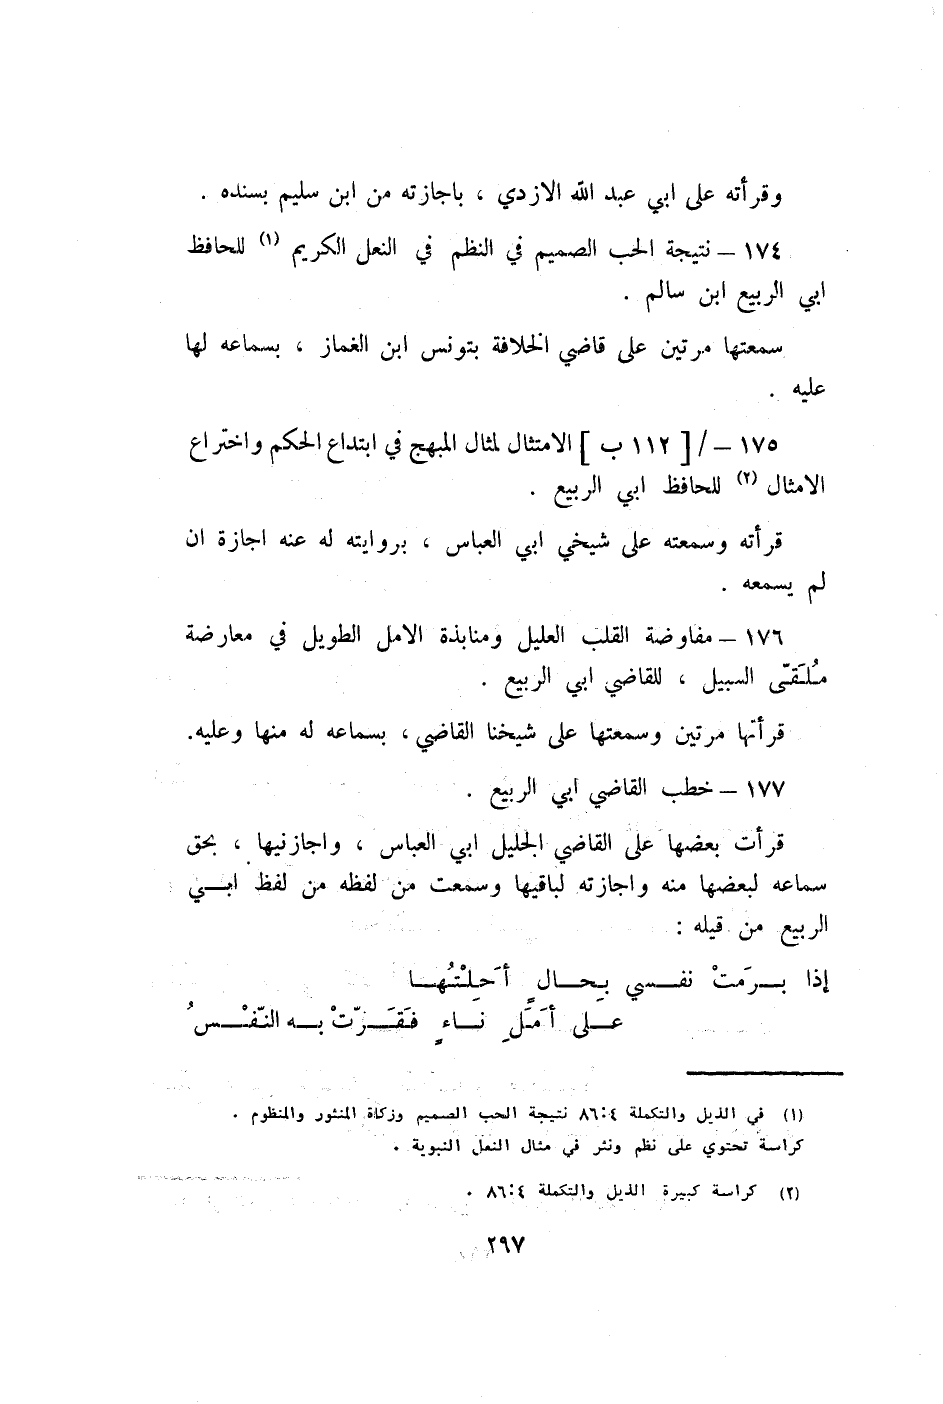 وقرأته على ابي عبد الله الازدي ، باجازته من ابن سليم بسنده .
١٧٤ – نتيجة الحب الصميم في النظم في النعل الكريم (١) للحافظ
ابي الربيع ابن سالم .
سمعتها مرتين على قاضي الخلافة بتونس ابن الغماز ، بسماعه لها
عليه .
١٧٥ – / [ ١١٢ ب ] الامتثال لمثال المبهج في ابتداع الحكم واختراع
الامثال (٢) للحافظ ابي الربيع .
قرأته وسمعته على شيخي ابي العباس ، بروايته له عنه اجازة ان
لم يسمعه .
١٧٦ – مفاوضة القلب العليل ومنابذة الامل الطويل في معارضة
مُلَقّى السبيل ، للقاضي ابي الربيع .
قرأتها مرتين وسمعتها على شيخنا القاضي ، بسماعه له منها وعليه.
١٧٧ – خطب القاضي ابي الربيع .
قرأت بعضها على القاضي الجليل ابي العباس ، واجازنيها ، بحق
سماعه لبعضها منه واجازته لباقيها وسمعت من لفظه من لفظ ابــي
الربيع من قيله :
إذا بــرَمتْ نفــسي بِحــالٍ أحَلِتُهــا
عــلى أمَلٍ نــاءٍ فقَــرّتْ بــه النّفْــسُ
(١) في الذيل والتكملة ٤:‏٨٦ نتيجة الحب الصميم وزكاة المنثور والمنظوم .
كراسة تحتوي على نظم ونثر في مثال النعل النبوية .
(٢) كراسة كبيرة الذيل والتكملة ٤:‏٨٦ .
٢٩٧